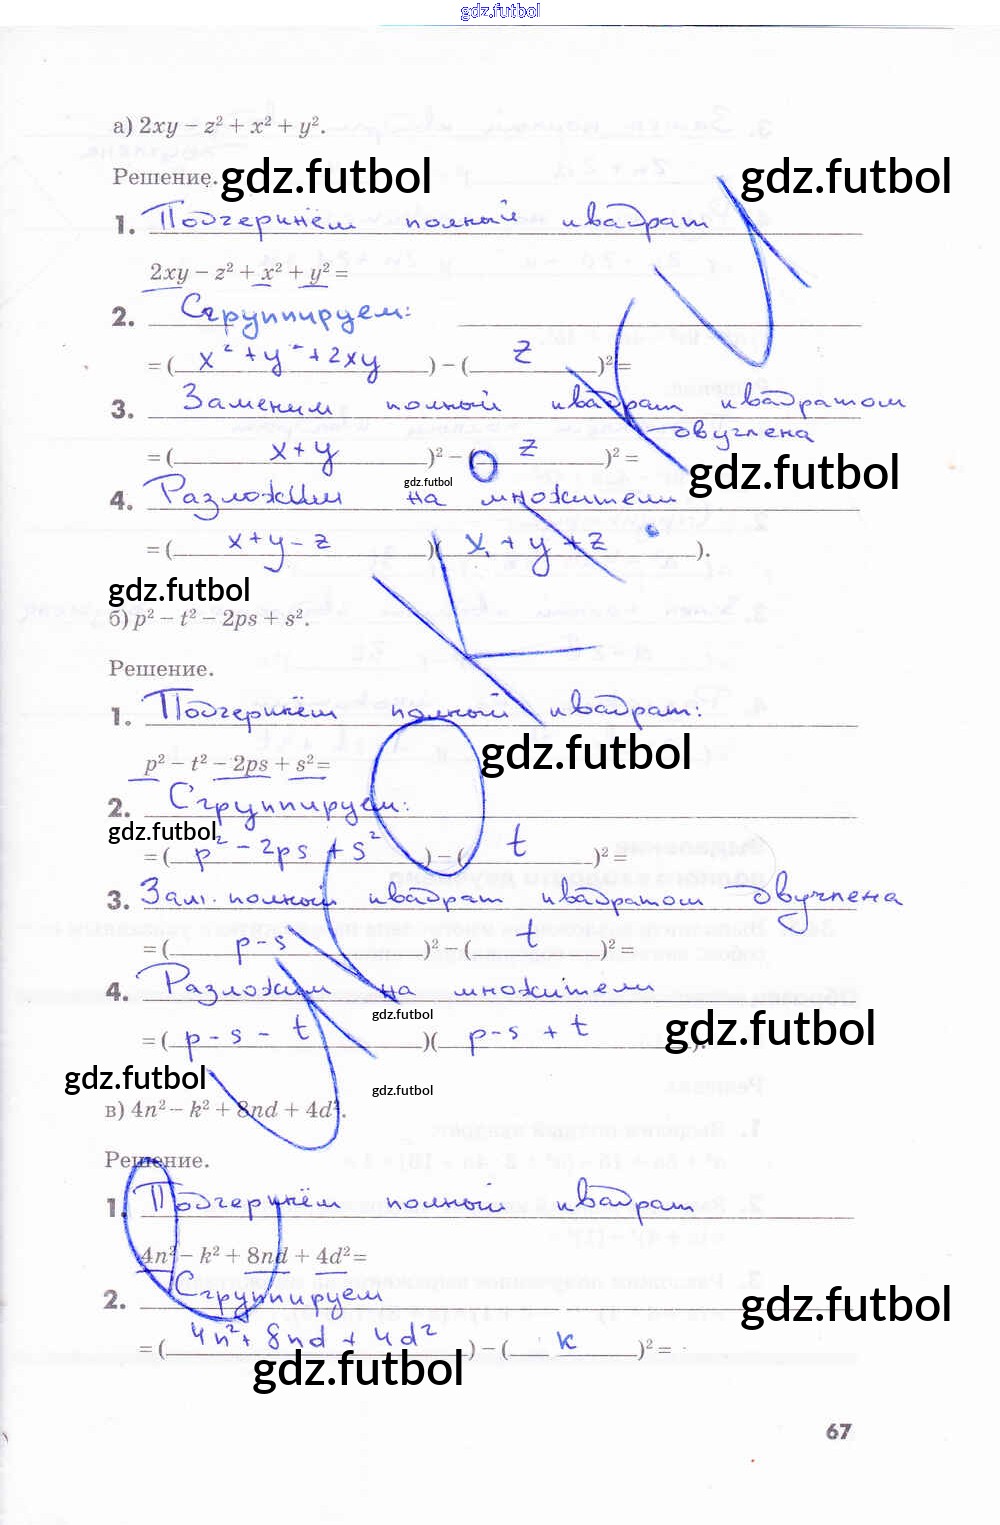 gdz.futbol
а) 2xy – z² + x² + y².
Решение. gdz.futbol gdz.futbol
1. Подчеркнём полный квадрат
2xy – z² + x² + y² =
2. Сгруппируем:
= ( x² + y² + 2xy ) – ( z )² =
3. Заменим полный квадрат квадратом
двучлена
= ( x + y )² – ( z )² =
gdz.futbol gdz.futbol
4. Разложим на множители
= ( x + y – z )( x + y + z ).
gdz.futbol
б) p² – t² – 2ps + s².
Решение.
1. Подчеркнём полный квадрат:
gdz.futbol
p² – t² – 2ps + s² =
2. Сгруппируем:
gdz.futbol
= ( p² – 2ps + s² ) – ( t )² =
3. Зам. полный квадрат квадратом двучлена
= ( p – s )² – ( t )² =
4. Разложим на множители
gdz.futbol gdz.futbol
= ( p – s – t )( p – s + t ).
gdz.futbol gdz.futbol
в) 4n² – k² + 8nd + 4d².
Решение.
1. Подчеркнём полный квадрат
4n² – k² + 8nd + 4d² =
2. Сгруппируем
gdz.futbol
= ( 4n² + 8nd + 4d² ) – ( k )² =
gdz.futbol
67